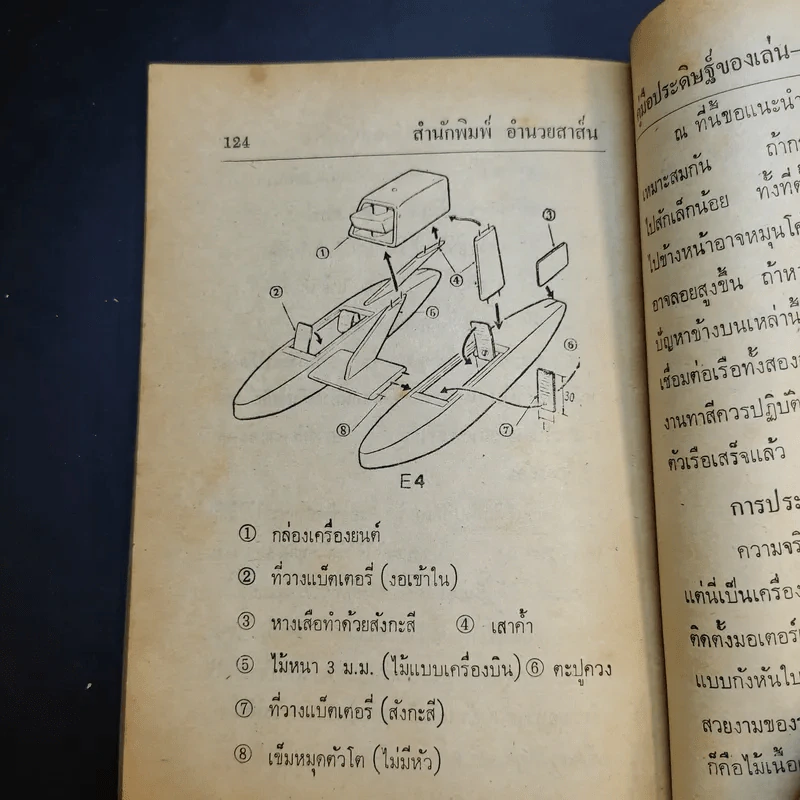 124
สำนักพิมพ์ อำนวยสาส์น
①
②
③
④
⑤
⑥
⑦
30
⑧
E4
① กล่องเครื่องยนต์
② ที่วางแบ็ตเตอรี่ (งอเข้าใน)
③ หางเสือทำด้วยสังกะสี ④ เสาค้ำ
⑤ ไม้หนา 3 ม.ม. (ไม้แบบเครื่องบิน) ⑥ ตะปูควง
⑦ ที่วางแบ็ตเตอรี่ (สังกะสี)
⑧ เข็มหมุดตัวโต (ไม่มีหัว)
คู่มือประดิษฐ์ของเล่น—
ณ ที่นี้ขอแนะนำ
เหมาะสมกัน
ไปสักเล็กน้อย
ไปข้างหน้าอาจหมุน
อาจลอยสูงขึ้น
ปัญหาข้างบนเหล่านี้
เชื่อมต่อเรือทั้งสอง
งานทาสีควรปฏิบัติ
ตัวเรือเสร็จแล้ว
การ
ความ
แต่นี่เป็นเครื่อง
ติดตั้งมอเตอร์
แบบกังหัน
สวยงามของ
ก็คือไม้